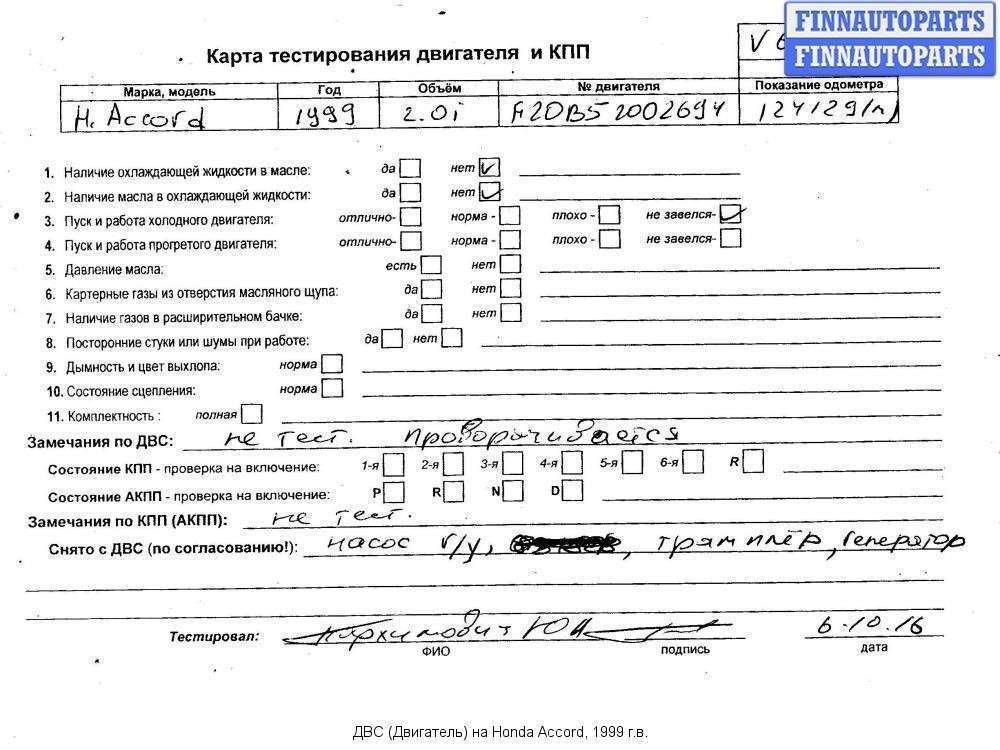 FINNAUTOPARTS
FINNAUTOPARTS
Карта тестирования двигателя и КПП
V
Марка, модель Год Объём № двигателя Показание одометра
H. Accord 1999 2.0i F20B5 2002694 124129(м)
1. Наличие охлаждающей жидкости в масле: да нет
2. Наличие масла в охлаждающей жидкости: да нет
3. Пуск и работа холодного двигателя: отлично- норма - плохо - не завелся-
4. Пуск и работа прогретого двигателя: отлично- норма - плохо - не завелся-
5. Давление масла: есть нет
6. Картерные газы из отверстия масляного щупа: да нет
7. Наличие газов в расширительном бачке: да нет
8. Посторонние стуки или шумы при работе: да нет
9. Дымность и цвет выхлопа: норма
10. Состояние сцепления: норма
11. Комплектность : полная
Замечания по ДВС: не тест. проворачивается
Состояние КПП - проверка на включение: 1-я 2-я 3-я 4-я 5-я 6-я R
Состояние АКПП - проверка на включение: P R N D
Замечания по КПП (АКПП): не тест.
Снято с ДВС (по согласованию!): насос г/у, , трамплёр, генератор
Тестировал: 6.10.16
ФИО подпись дата
ДВС (Двигатель) на Honda Accord, 1999 г.в.